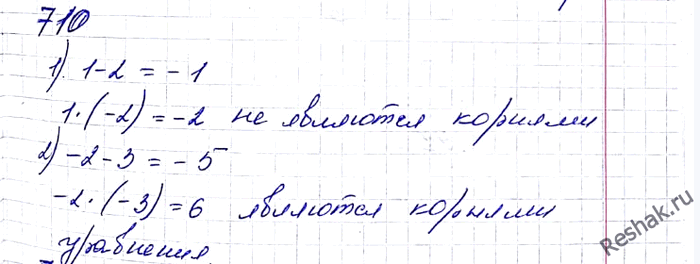 710
1) 1-2 = -1
1·(-2) = -2 не являются корнями
2) -2-3 = -5
-2·(-3) = 6 являются корнями
уравнения.
Reshak.ru